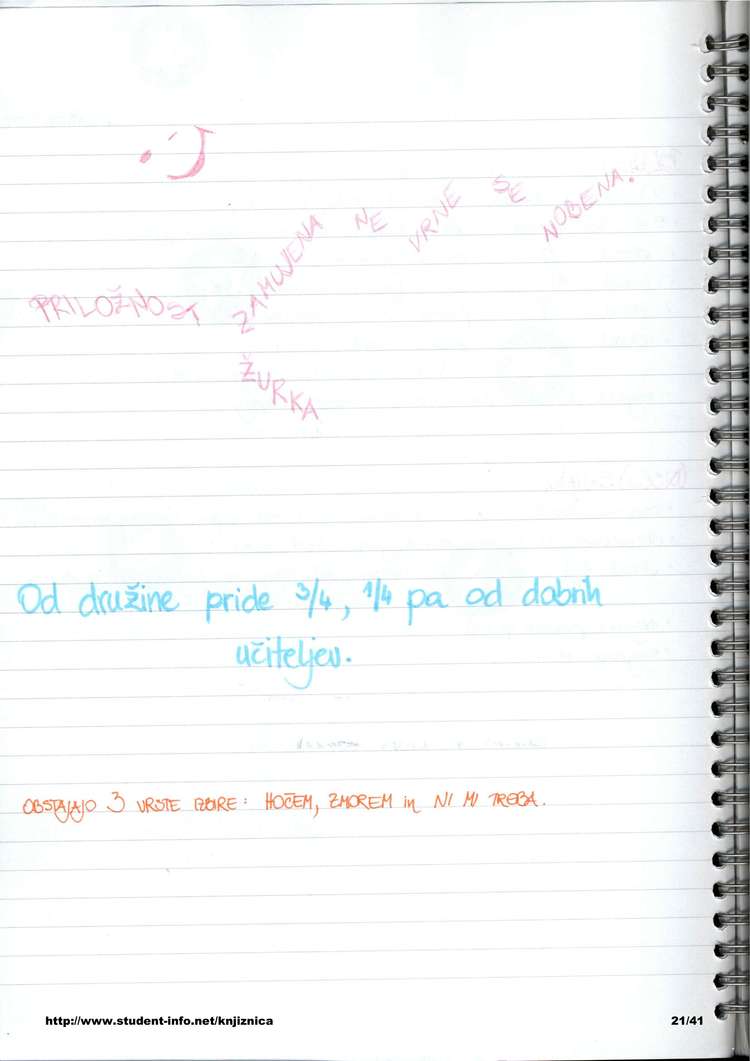 PRILOŽNOST ZAMUJENA NE VRNE SE NOBENA.
ŽURKA
Od družine pride 3/4, 1/4 pa od dobrih
učiteljev.
OBSTAJAJO 3 VRSTE IZBIRE: HOČEM, ZMOREM in NI MI TREBA.
http://www.student-info.net/knjiznica 21/41